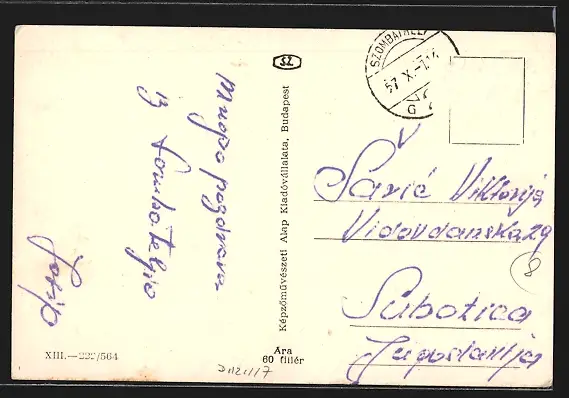 Mnogo pozdrava
iz Sombatelja
Josip
XIII.—222/564
SZ
Képzőművészeti Alap Kiadóvállalata, Budapest
Ára
60 fillér
SZOMBATHELY
57 X.-7.14
Savić Viktorija
Vidovdanska 29
8
Subotica
Jugoslavija